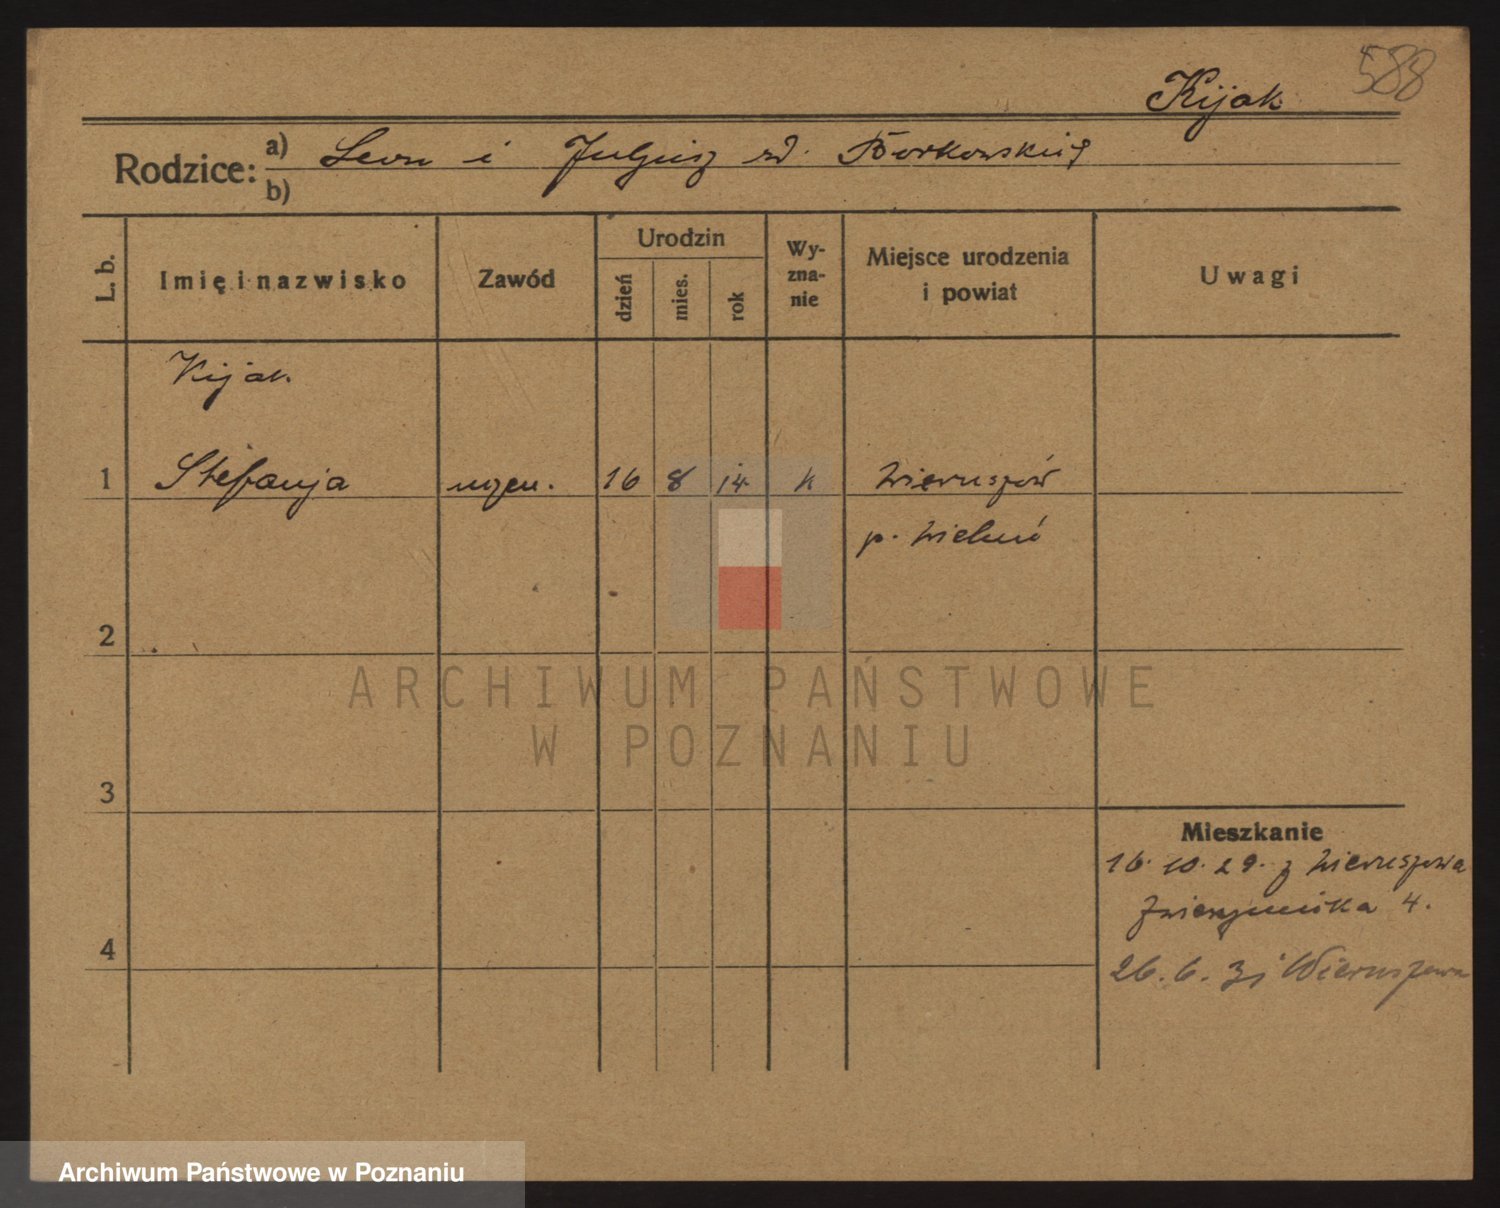 588
Kijak
Rodzice: a) Leon i Juljusz zd. Borkowskich
b)
L. b.
Imię i nazwisko
Zawód
Urodzin
dzień
mies.
rok
Wy-
zna-
nie
Miejsce urodzenia
i powiat
Uwagi
Kijak
1 Stefanja uczen. 16 8 14 k Wieruszów
p. Wieluń
2
3
4
Mieszkanie
16. 10. 29. z Wieruszowa
Zwierzyniecka 4.
26. 6. 31 Wieruszowa
ARCHIWUM PAŃSTWOWE
W POZNANIU
Archiwum Państwowe w Poznaniu